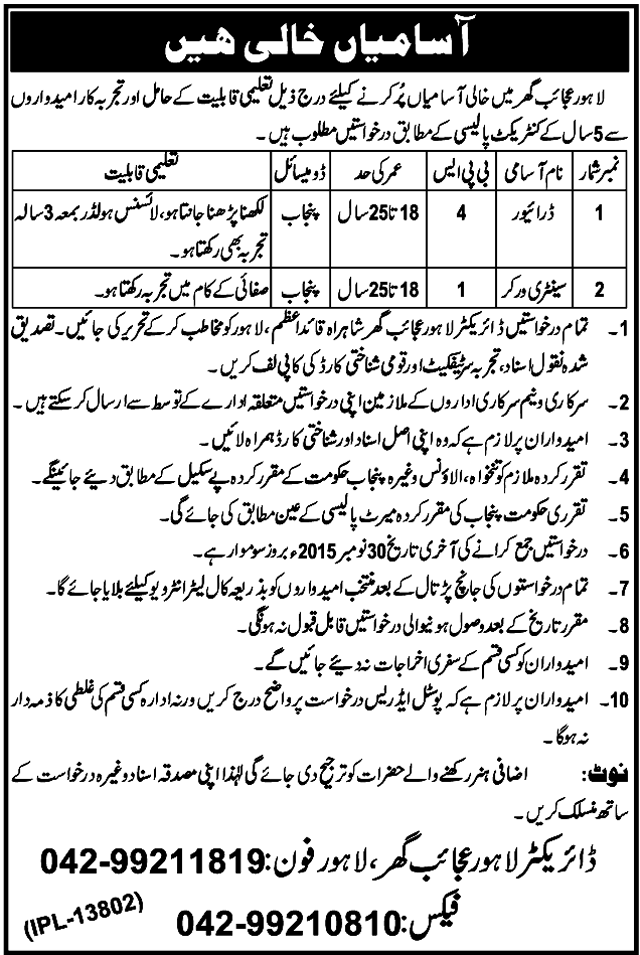 آسامیاں خالی ھیں
لاہور عجائب گھر میں خالی آسامیاں پُر کرنے کیلئے درج ذیل تعلیمی قابلیت کے حامل اور تجربہ کار امیدواروں
سے 5 سال کے کنٹریکٹ پالیسی کے مطابق درخواستیں مطلوب ہیں۔
نمبر شمار نام آسامی بی پی ایس عمر کی حد ڈومیسائل تعلیمی قابلیت
1 ڈرائیور 4 18 تا 25 سال پنجاب لکھنا پڑھنا جانتا ہو، لائسنس ہولڈر بمعہ 3 سالہ
تجربہ بھی رکھتا ہو۔
2 سینٹری ورکر 1 18 تا 25 سال پنجاب صفائی کے کام میں تجربہ رکھتا ہو۔
1۔ تمام درخواستیں ڈائریکٹر لاہور عجائب گھر شاہراہ قائد اعظم، لاہور کو مخاطب کر کے تحریر کی جائیں۔ تصدیق
شدہ نقول اسناد، تجربہ سرٹیفکیٹ اور قومی شناختی کارڈ کی کاپی لف کریں۔
2۔ سرکاری و نیم سرکاری اداروں کے ملازمین اپنی درخواستیں متعلقہ ادارے کے توسط سے ارسال کر سکتے ہیں۔
3۔ امیدواران پر لازم ہے کہ وہ اپنی اصل اسناد اور شناختی کارڈ ہمراہ لائیں۔
4۔ تقرر کردہ ملازم کو تنخواہ، الاؤنس وغیرہ پنجاب حکومت کے مقرر کردہ پے سکیل کے مطابق دیئے جائینگے۔
5۔ تقرری حکومت پنجاب کی مقرر کردہ میرٹ پالیسی کے عین مطابق کی جائے گی۔
6۔ درخواستیں جمع کرانے کی آخری تاریخ 30 نومبر 2015ء بروز سوموار ہے۔
7۔ تمام درخواستوں کی جانچ پڑتال کے بعد منتخب امیدواروں کو بذریعہ کال لیٹر انٹرویو کیلئے بلایا جائے گا۔
8۔ مقرر تاریخ کے بعد وصول ہونیوالی درخواستیں قابل قبول نہ ہونگی۔
9۔ امیدواران کو کسی قسم کے سفری اخراجات نہ دیئے جائیں گے۔
10۔ امیدواران پر لازم ہے کہ پوسٹل ایڈریس درخواست پر واضح درج کریں ورنہ ادارہ کسی قسم کی غلطی کا ذمہ دار
نہ ہوگا۔
نوٹ: اضافی ہنر رکھنے والے حضرات کو ترجیح دی جائے گی لہٰذا اپنی مصدقہ اسناد وغیرہ درخواست کے
ساتھ منسلک کریں۔
ڈائریکٹر لاہور عجائب گھر، لاہور فون: 042-99211819
فیکس: 042-99210810
(IPL-13802)